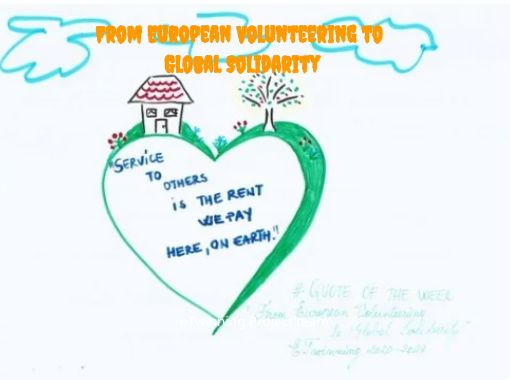 FROM EUROPEAN VOLUNTEERING TO
GLOBAL SOLIDARITY
"SERVICE
TO
OTHERS
iS THE RENT
WE PAY
HERE, ON EARTH."
# QUOTE OF THE WEEK
"From European Volunteering
to Global Solidarity"
eTwinning 2020-2021